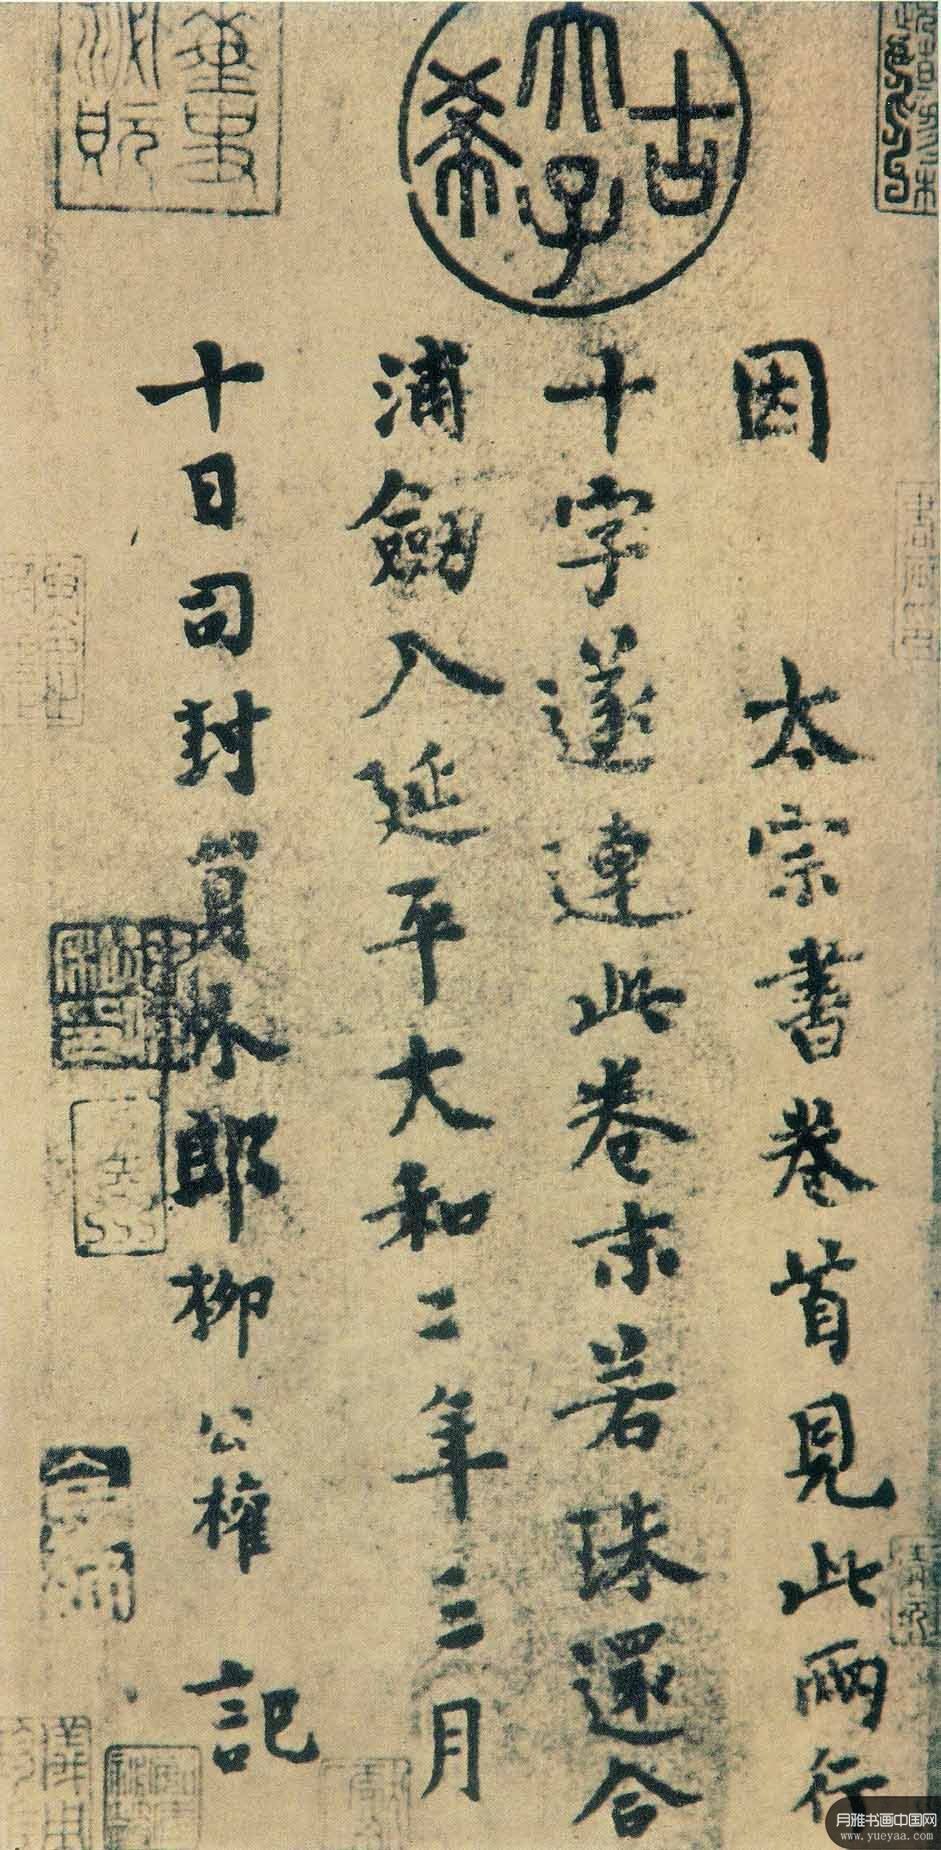 古希天子
因 太宗書卷首見此兩行
十字遂連此卷末若珠還合
浦劔入延平大和二年三月
十日司封員外郎柳公權 記
月雅书画中国网
www.yueyaa.com